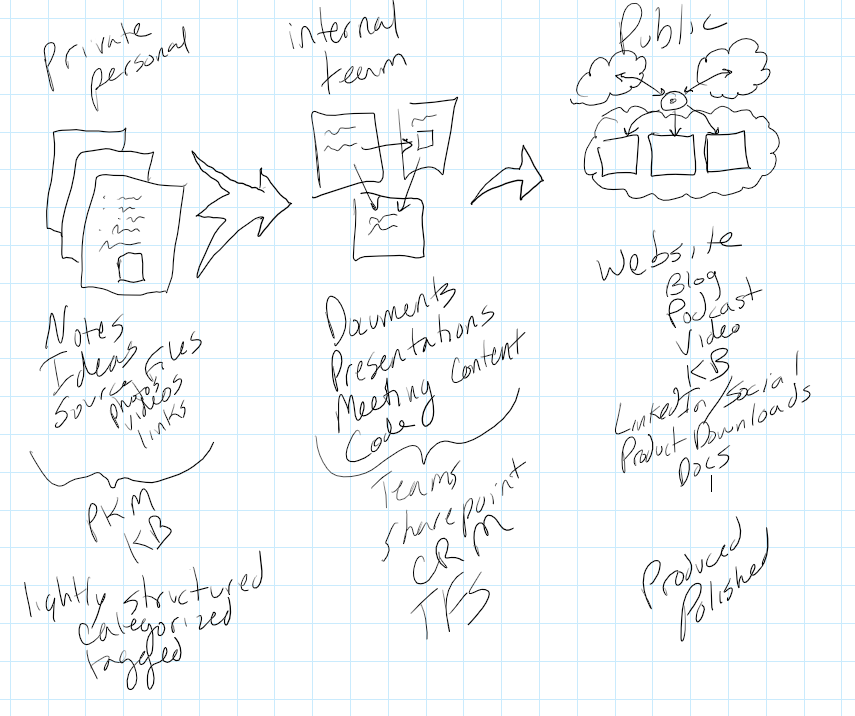 Private
personal
internal
team
Public
Notes
Ideas
Source Files
photos
videos
links
PKM
KB
lightly structured
categorized
tagged
Documents
Presentations
Meeting Content
Code
Teams
Sharepoint
CRM
TFS
Website
Blog
Podcast
Video
KB
LinkedIn/Social
Product Downloads
Docs
Produced
Polished